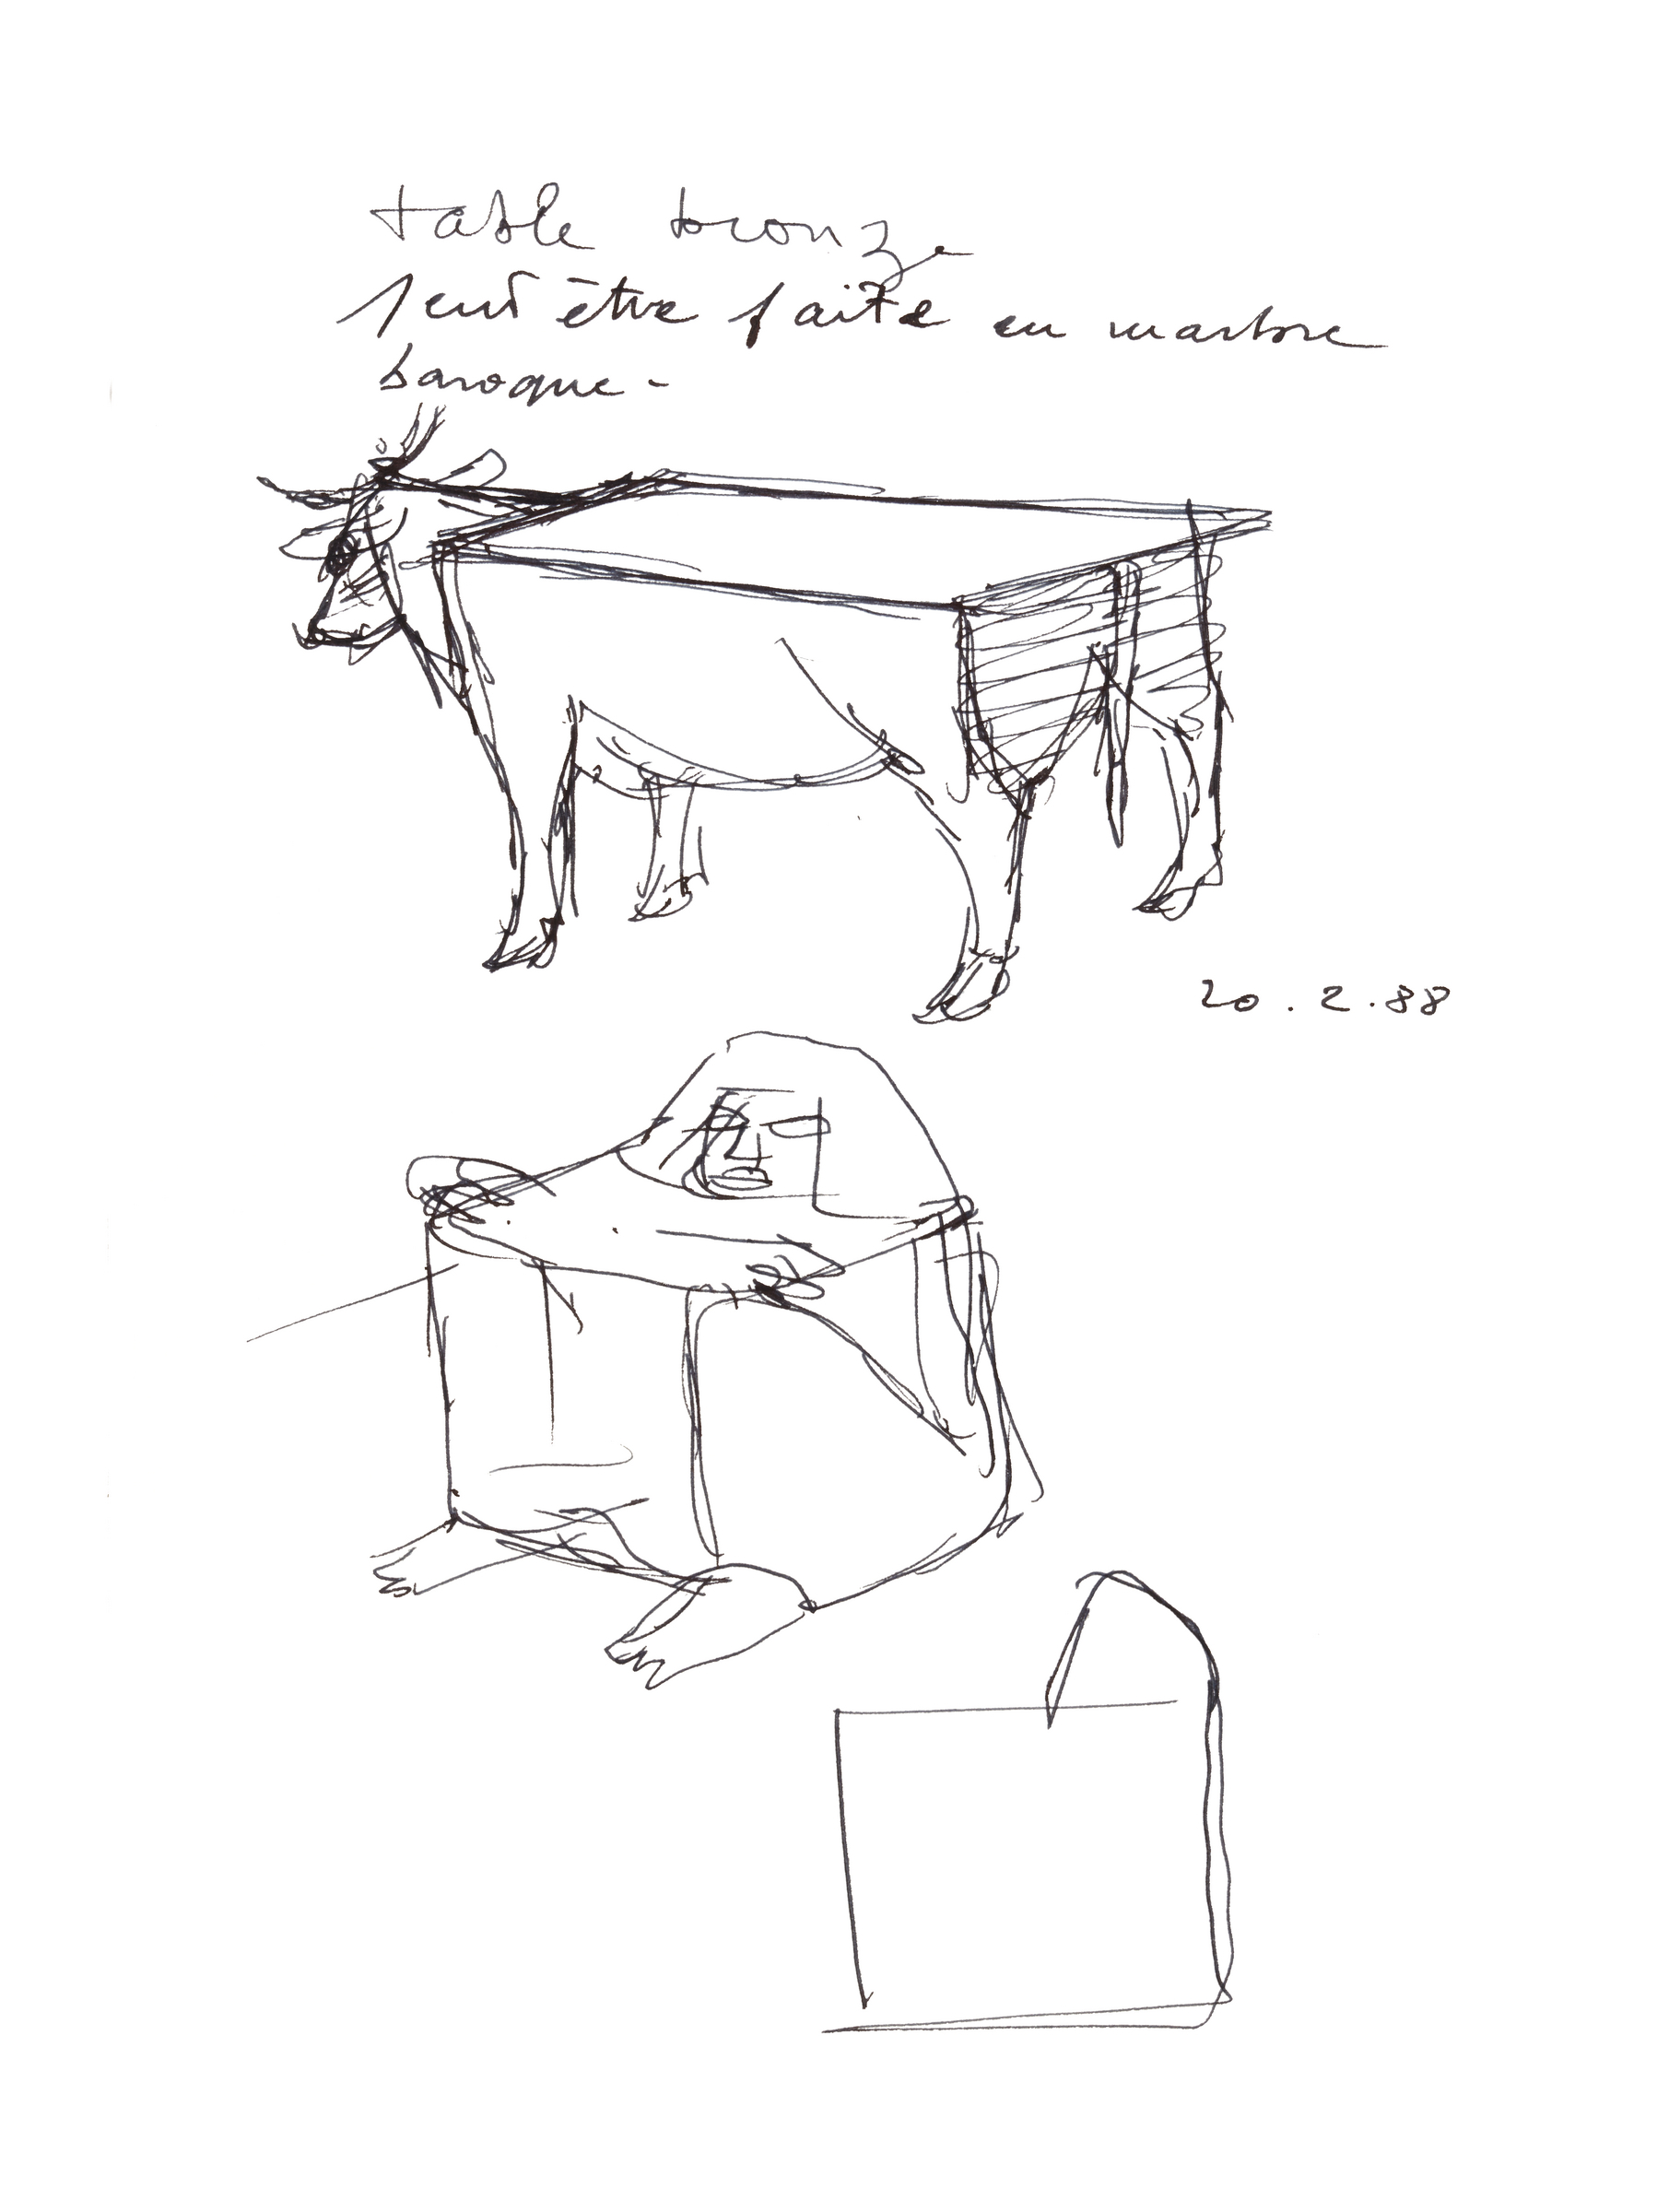 table bronze
peut être faite en marbre
baroque -
20.2.88